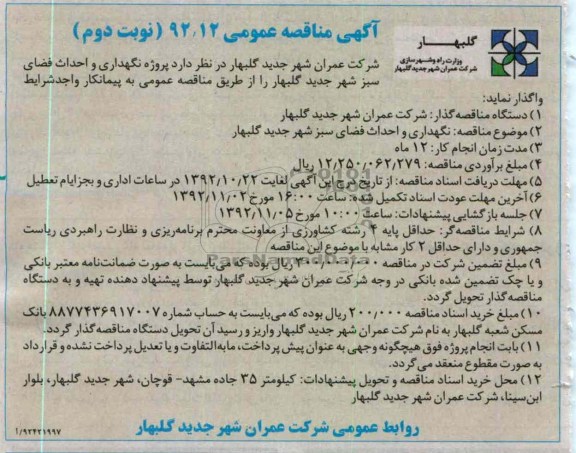 آگهی مناقصه عمومی ۹۲٫۱۲ (نوبت دوم)
گلبهار
وزارت راه و شهرسازی
شرکت عمران شهر جدید گلبهار
شرکت عمران شهر جدید گلبهار در نظر دارد پروژه نگهداری و احداث فضای
سبز شهر جدید گلبهار را از طریق مناقصه عمومی به پیمانکار واجدشرایط
واگذار نماید:
۱) دستگاه مناقصه‌گذار: شرکت عمران شهر جدید گلبهار
۲) موضوع مناقصه: نگهداری و احداث فضای سبز شهر جدید گلبهار
۳) مدت زمان انجام کار: ۱۲ ماه
۴) مبلغ برآوردی مناقصه: ۱۲/۲۵۰/۰۶۲/۲۷۹ ریال
۵) مهلت دریافت اسناد مناقصه: از تاریخ درج این آگهی لغایت ۱۳۹۲/۱۰/۲۲ در ساعات اداری و بجز ایام تعطیل
۶) آخرین مهلت عودت اسناد تکمیل شده: ساعت ۱۶:۰۰ مورخ ۱۳۹۲/۱۱/۰۲
۷) جلسه بازگشایی پیشنهادات: ساعت ۱۰:۰۰ مورخ ۱۳۹۲/۱۱/۰۵
۸) شرایط مناقصه‌گر: حداقل پایه ۴ رشته کشاورزی از معاونت محترم برنامه‌ریزی و نظارت راهبردی ریاست
جمهوری و دارای حداقل ۲ کار مشابه با موضوع این مناقصه
۹) مبلغ تضمین شرکت در مناقصه ریال بوده که می‌بایست به صورت ضمانت‌نامه معتبر بانکی
و یا چک تضمین شده بانکی در وجه شرکت عمران شهر جدید گلبهار توسط پیشنهاد دهنده تهیه و به دستگاه
مناقصه‌گذار تحویل گردد.
۱۰) مبلغ خرید اسناد مناقصه ۲۰۰/۰۰۰ ریال بوده که می‌بایست به حساب شماره ۸۸۷۷۴۳۶۹۱۷۰۰۷ بانک
مسکن شعبه گلبهار به نام شرکت عمران شهر جدید گلبهار واریز و رسید آن تحویل دستگاه مناقصه‌گذار گردد.
۱۱) بابت انجام پروژه فوق هیچگونه وجهی به عنوان پیش پرداخت، مابه‌التفاوت و یا تعدیل پرداخت نشده و قرارداد
به صورت مقطوع منعقد می‌گردد.
۱۲) محل خرید اسناد مناقصه و تحویل پیشنهادات: کیلومتر ۳۵ جاده مشهد- قوچان، شهر جدید گلبهار، بلوار
ابن‌سینا، شرکت عمران شهر جدید گلبهار
روابط عمومی شرکت عمران شهر جدید گلبهار
۱/۹۲۴۲۱۹۹۷